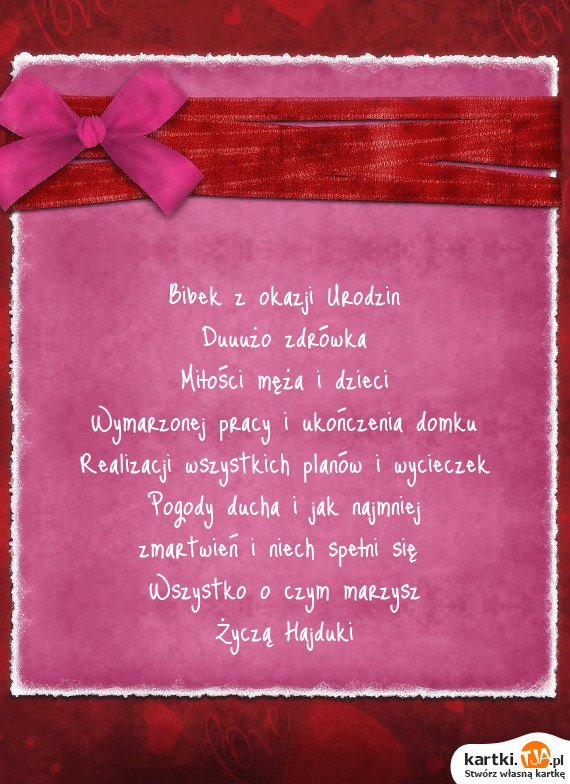 love
Bibek z okazji Urodzin
Duuużo zdrówka
Miłości męża i dzieci
Wymarzonej pracy i ukończenia domku
Realizacji wszystkich planów i wycieczek
Pogody ducha i jak najmniej
zmartwień i niech spełni się
Wszystko o czym marzysz
Życzą Hajduki
love
kartki.TJA.pl
Stwórz własną kartkę